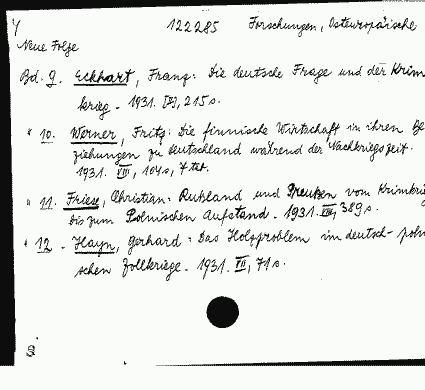 4 122285 Forschungen, Osteuropäische
Neue Folge
Bd. 9. Eckhart, Franz: Die deutsche Frage und der Krim
krieg. - 1931. 215 s.
" 10. Werner, Fritz: Die finnische Wirtschaft in ihren Be
ziehungen zu Deutschland während der Nachkriegszeit.
1931. VIII, 104 s,
" 11. Friese, Christian: Rußland und Preußen vom Krimkrie
bis zum Polnischen Aufstand. - 1931. VIII, 389 s.
" 12. - Hayn, Gerhard: Das Holzproblem im deutsch-poln
schen Zollkriege. - 1931. VII, 71 s.